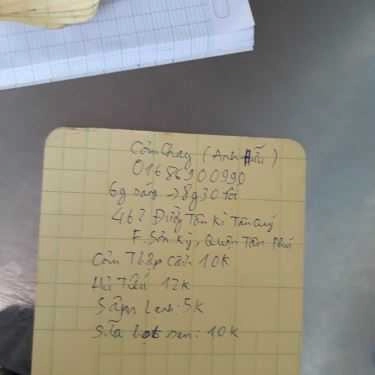 Cơm Chay (Anh Hữu)
01686900990
6g sáng → 8g30 tối
462 Đường Tân Kì Tân Quý
F. Sơn Kỳ, Quận Tân Phú
Cơm Thập Cẩm 10K
Hủ Tiếu 12K
Sâm Lạnh 5K
Sữa hạt sen: 10K